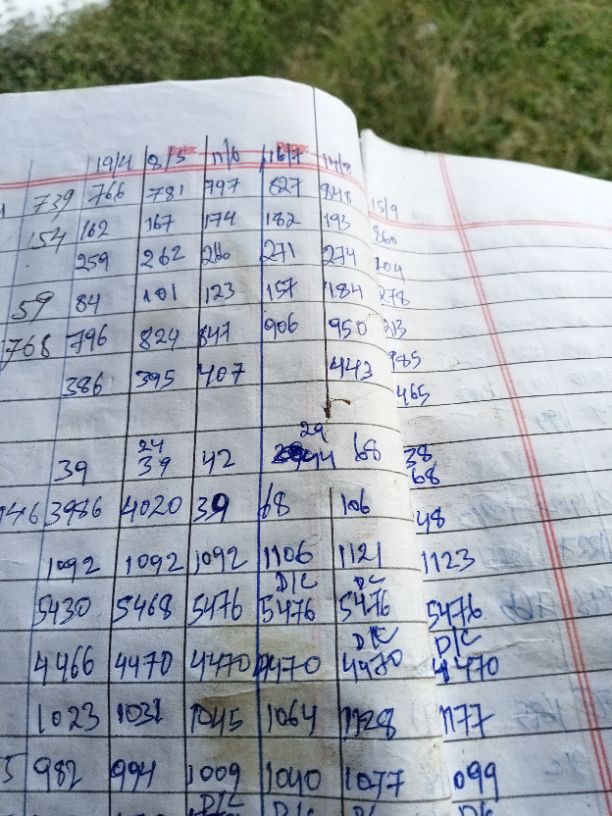 19/4 8/5 11/6 16/7 14/8 15/9
739 766 781 797 827 848 860
154 162 167 174 182 193 204
259 262 271 274 278
59 84 101 123 157 184 213
768 796 824 847 906 950 985
386 395 407 443 465
24 29
39 39 42 44 68 38
68
3986 4020 39 68 106 48
1092 1092 1092 1106 1121 1123
D/C DC
5430 5468 5476 5476 5476 5476
D/C D/C
4466 4470 4470 4470 4470 4470
1023 1031 1045 1064 1128 1177
5 982 994 1009 1040 1077 1099
D/C D/C D/C D/C